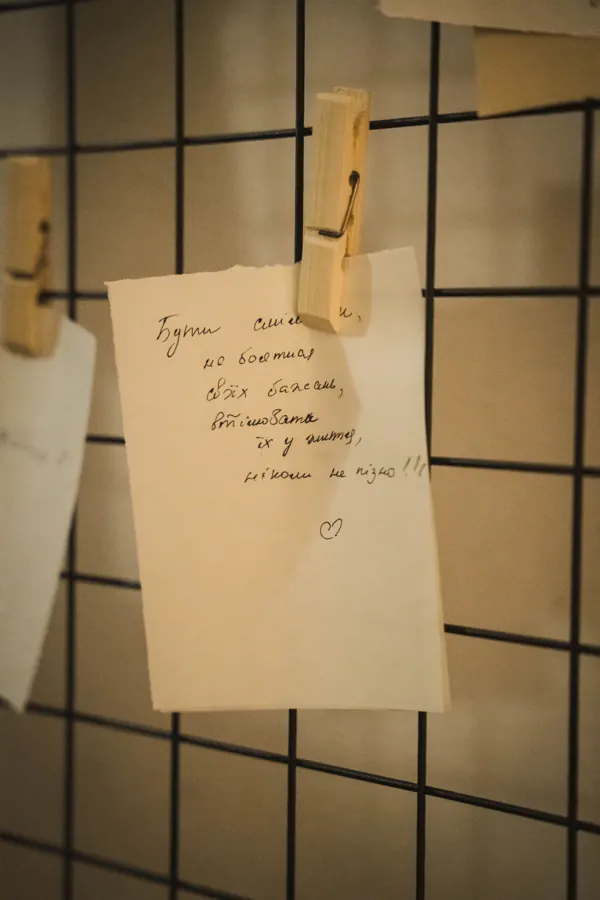 Бути
не боятися
своїх бажань,
втілювати
їх у життя,
ніколи не пізно!!!